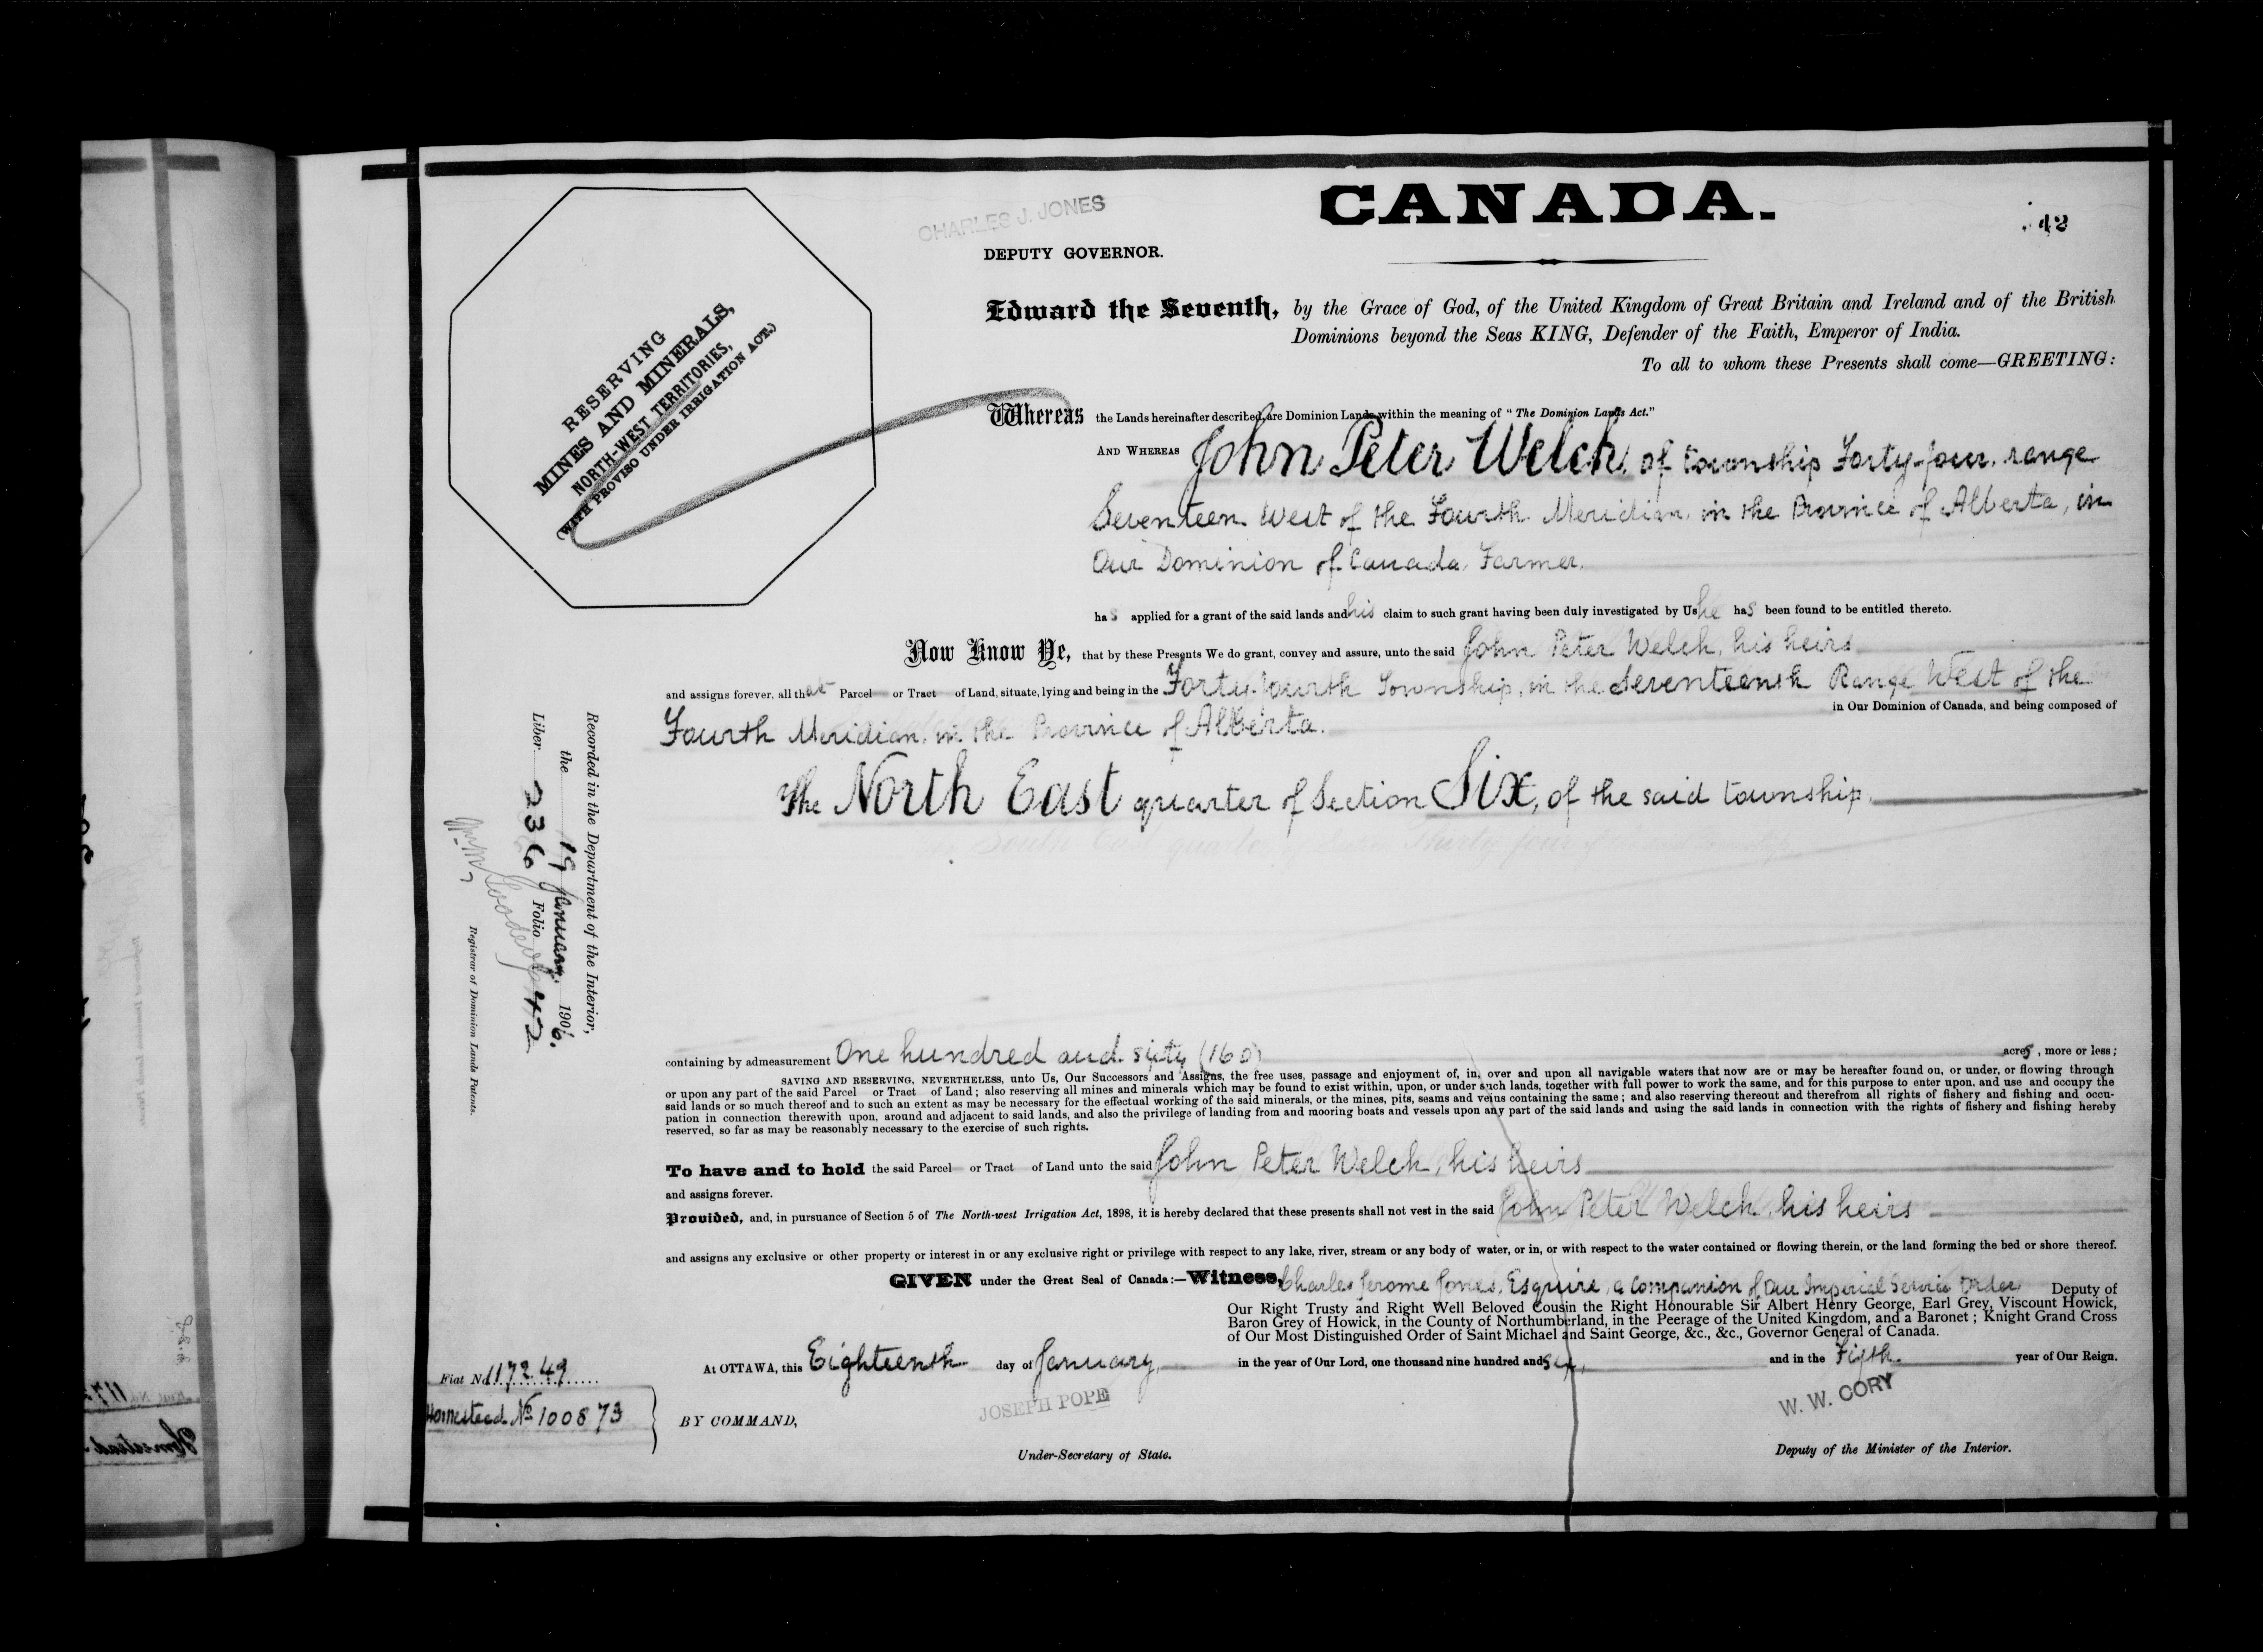 CANADA.
42
CHARLES J. JONES
DEPUTY GOVERNOR.
RESERVING
MINES AND MINERALS,
NORTH-WEST TERRITORIES,
(WITH PROVISO UNDER IRRIGATION ACT.)
Edward the Seventh, by the Grace of God, of the United Kingdom of Great Britain and Ireland and of the British
Dominions beyond the Seas KING, Defender of the Faith, Emperor of India.
To all to whom these Presents shall come—GREETING:
Whereas the Lands hereinafter described, are Dominion Lands within the meaning of "The Dominion Lands Act."
AND WHEREAS John Peter Welch, of township Forty-four, range
Seventeen West of the Fourth Meridian, in the Province of Alberta, in
Our Dominion of Canada, Farmer.
has applied for a grant of the said lands and his claim to such grant having been duly investigated by Us he has been found to be entitled thereto.
Now Know Ye, that by these Presents We do grant, convey and assure, unto the said John Peter Welch, his heirs
and assigns forever, all that Parcel or Tract of Land, situate, lying and being in the Forty-fourth Township, in the Seventeenth Range West of the
Fourth Meridian, in the Province of Alberta. in Our Dominion of Canada, and being composed of
The North East quarter of Section Six, of the said township.
containing by admeasurement One hundred and sixty (160) acres, more or less;
SAVING AND RESERVING, NEVERTHELESS, unto Us, Our Successors and Assigns, the free uses, passage and enjoyment of, in, over and upon all navigable waters that now are or may be hereafter found on, or under, or flowing through
or upon any part of the said Parcel or Tract of Land; also reserving all mines and minerals which may be found to exist within, upon, or under such lands, together with full power to work the same, and for this purpose to enter upon, and use and occupy the
said lands or so much thereof and to such an extent as may be necessary for the effectual working of the said minerals, or the mines, pits, seams and veins containing the same; and also reserving thereout and therefrom all rights of fishery and fishing and occu-
pation in connection therewith upon, around and adjacent to said lands, and also the privilege of landing from and mooring boats and vessels upon any part of the said lands and using the said lands in connection with the rights of fishery and fishing hereby
reserved, so far as may be reasonably necessary to the exercise of such rights.
To have and to hold the said Parcel or Tract of Land unto the said John Peter Welch, his heirs
and assigns forever.
Provided, and, in pursuance of Section 5 of The North-west Irrigation Act, 1898, it is hereby declared that these presents shall not vest in the said John Peter Welch, his heirs
and assigns any exclusive or other property or interest in or any exclusive right or privilege with respect to any lake, river, stream or any body of water, or in, or with respect to the water contained or flowing therein, or the land forming the bed or shore thereof.
GIVEN under the Great Seal of Canada:—Witness, Charles Jerome Jones, Esquire, a Companion of Our Imperial Service Order, Deputy of
Our Right Trusty and Right Well Beloved Cousin the Right Honourable Sir Albert Henry George, Earl Grey, Viscount Howick,
Baron Grey of Howick, in the County of Northumberland, in the Peerage of the United Kingdom, and a Baronet; Knight Grand Cross
of Our Most Distinguished Order of Saint Michael and Saint George, &c., &c., Governor General of Canada.
At OTTAWA, this Eighteenth day of January, in the year of Our Lord, one thousand nine hundred and six, and in the Fifth year of Our Reign.
Fiat No. 117249
Homestead No 100873
BY COMMAND,
JOSEPH POPE
Under-Secretary of State.
W. W. CORY
Deputy of the Minister of the Interior.
Recorded in the Department of the Interior,
the 19 January 1906.
Liber 236 Folio 42
Registrar of Dominion Lands Patents.